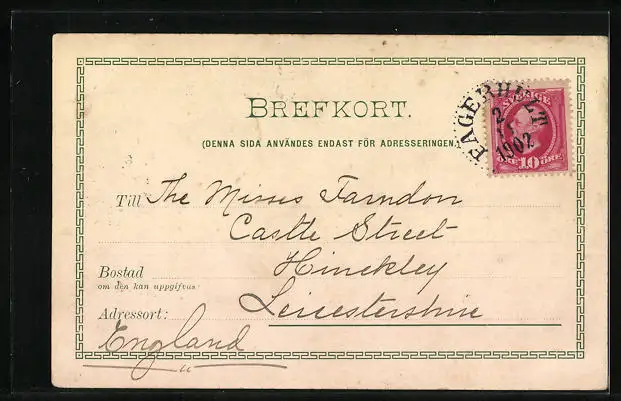 BREFKORT.
(DENNA SIDA ANVÄNDES ENDAST FÖR ADRESSERINGEN
SVERIGE
ÖRE 10 ÖRE
FAGERHULT
2
1902
Till The Misses Farndon
Castle Street
Bostad Hinckley
om den kan uppgifvas
Adressort: Leicestershire
England